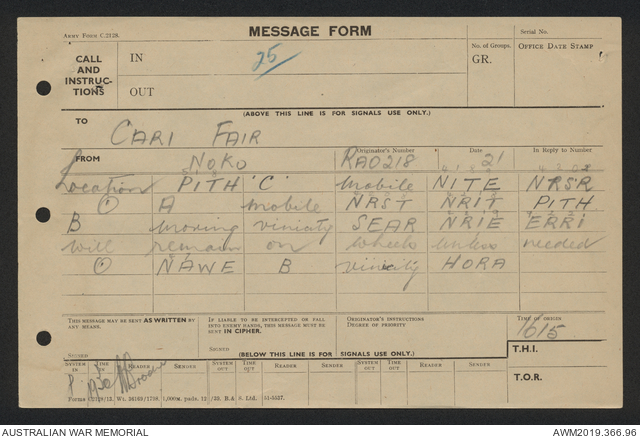 Army Form C.2128.
MESSAGE FORM
Serial No.
CALL AND INSTRUCTIONS
IN
25
No. of Groups.
GR.
OFFICE DATE STAMP
OUT
(ABOVE THIS LINE IS FOR SIGNALS USE ONLY.)
TO
CARI FAIR
FROM
Originator's Number
Date
In Reply to Number
NOKO RAO218 21
Location PITH 'C' mobile NITE NRSR
⊙ A mobile NRST NRIT PITH
B moving vinicity SEAR NRIE ERRI
will remain on wheels unless needed
⊙ NAWE B vinicity HORA
THIS MESSAGE MAY BE SENT AS WRITTEN BY ANY MEANS.
IF LIABLE TO BE INTERCEPTED OR FALL INTO ENEMY HANDS, THIS MESSAGE MUST BE SENT IN CIPHER.
ORIGINATOR'S INSTRUCTIONS
DEGREE OF PRIORITY
TIME OF ORIGIN
1615
SIGNED
SIGNED
(BELOW THIS LINE IS FOR SIGNALS USE ONLY.)
T.H.I.
SYSTEM IN
TIME IN
READER
SENDER
SYSTEM OUT
TIME OUT
READER
SENDER
SYSTEM OUT
TIME OUT
READER
SENDER
T.O.R.
AUSTRALIAN WAR MEMORIAL
AWM2019.366.96